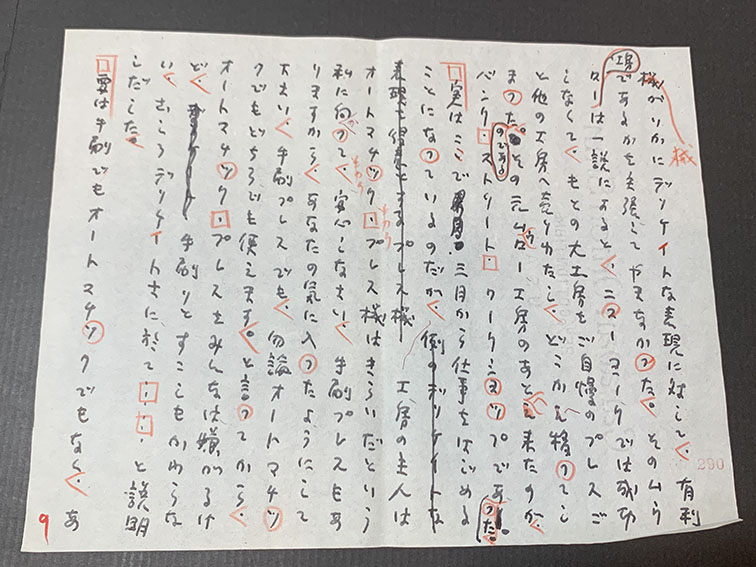 機がいかにデリケイトな表現に対して、有利
であるかを主張してやまなかった。そのムラ
ローは一説によると、ニューヨークでは成功
しなくて、もとの大工房をご自慢のプレスご
と他の工房へ売りわたし、どこかえ移ってし
まったのである。その元ムロー工房のあとへ来たのが、
バンク・ストリート・ワークショップであった。
実はここで三月から仕事をはじめる
ことになっているのだが、
工房の主人は
オートマチック・プレス機はきらいだという
私に向って、安心しなさい、手刷プレスもあ
りますから、あなたの気に入ったようにして
下さい、手刷プレスでも、勿論オートマチッ
クでもどちらでも使えます。と言ってから、
オートマチック・プレスをみんなは嫌がるけ
ど、手刷りとすこしもかわらな
い、むしろデリケイトさに於て・・・と説明
しだした。
要は手刷でもオートマチックでもなく、あ
9
290